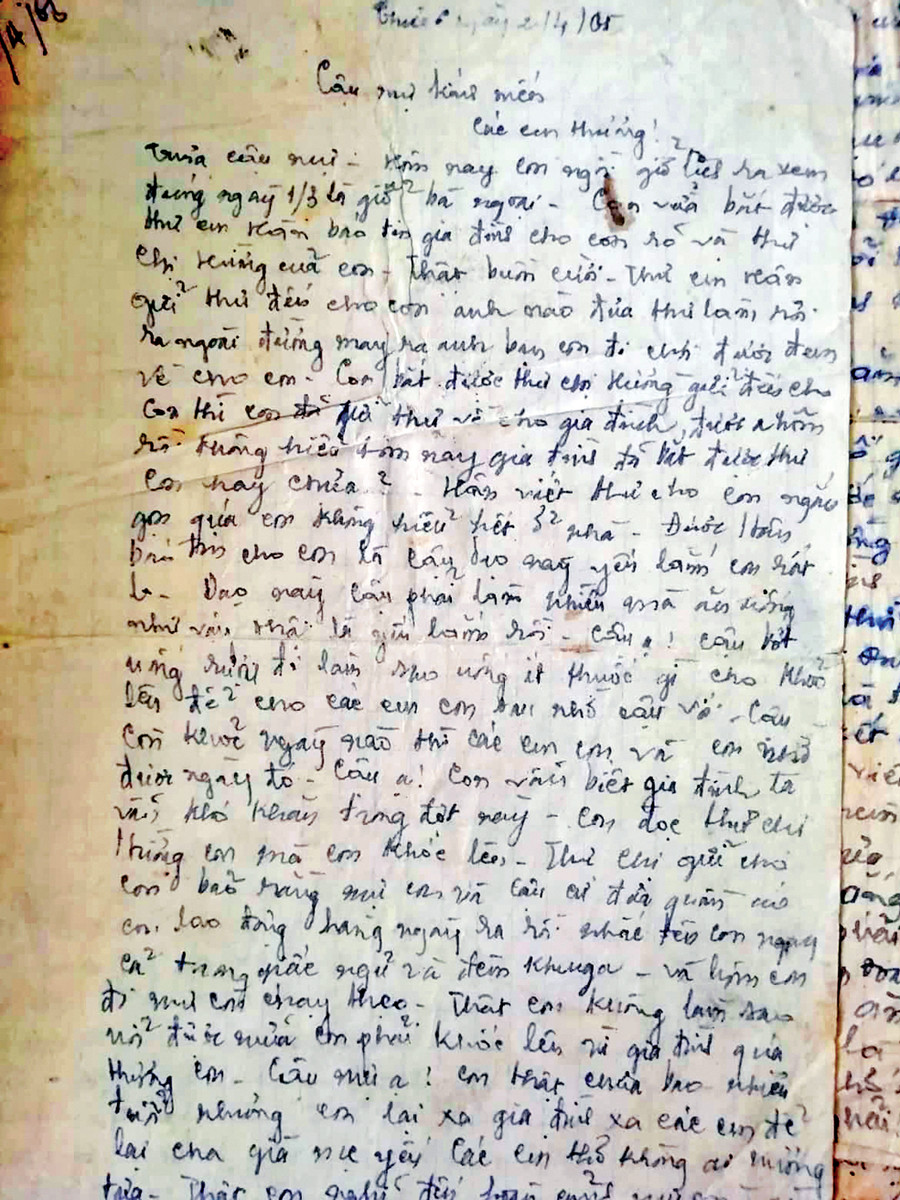 ngày 2/4/65
Cậu mợ kính mến
Các em thương!
Thưa cậu mợ - Hôm nay con ngồi giở lịch ra xem
đúng ngày 1/3 là giỗ bà ngoại - Con vừa bắt được
thư em báo tin gia đình cho con rõ và thư
chị Hường của con - Thật buồn cười - Thư em
gửi thư đến cho con anh nào đưa thư làm rơi
ra ngoài đường may ra anh bạn con đi chơi được đem
về cho con - Con bắt được thư chị Hường gửi đến cho
con thì con đã gửi thư về cho gia đình, được
rồi không hiểu hôm nay gia đình đã bắt được thư
con hay chưa? - viết thư cho con ngắn
gọn quá con không hiểu hết ở nhà - Được
báo tin cho con là cậu dạo này yếu lắm con rất
lo - Dạo này cậu phải làm nhiều mà ăn uống
như vậy là yếu lắm rồi - Cậu ạ! cậu bớt
uống rượu đi làm sao uống ít thuốc gì cho khoẻ
lên để cho các em con nhờ cậu với - Cậu
còn khoẻ ngày nào thì các em con và con nhờ
được ngày đó - Cậu ạ! Con vẫn biết gia đình ta
vẫn khó khăn trong đợt này - Con đọc thư chị
Hường con mà con khóc lên - Thư chị gửi cho
con bảo rằng mợ con và cậu cứ
con lao động hàng ngày ra rồi nhắc đến con ngay
cả trong giấc ngủ và đêm khuya - và hôm con
đi mợ còn chạy theo - Thật con không làm sao
nói được nữa con phải khóc lên vì gia đình quá
thương con - Cậu mợ ạ! con thật chưa bao nhiêu
tuổi nhưng con lại xa gia đình xa các em để
lại cha già mẹ yếu các em thơ không ai nương
tựa - Thật con nghĩ đến hoàn cảnh